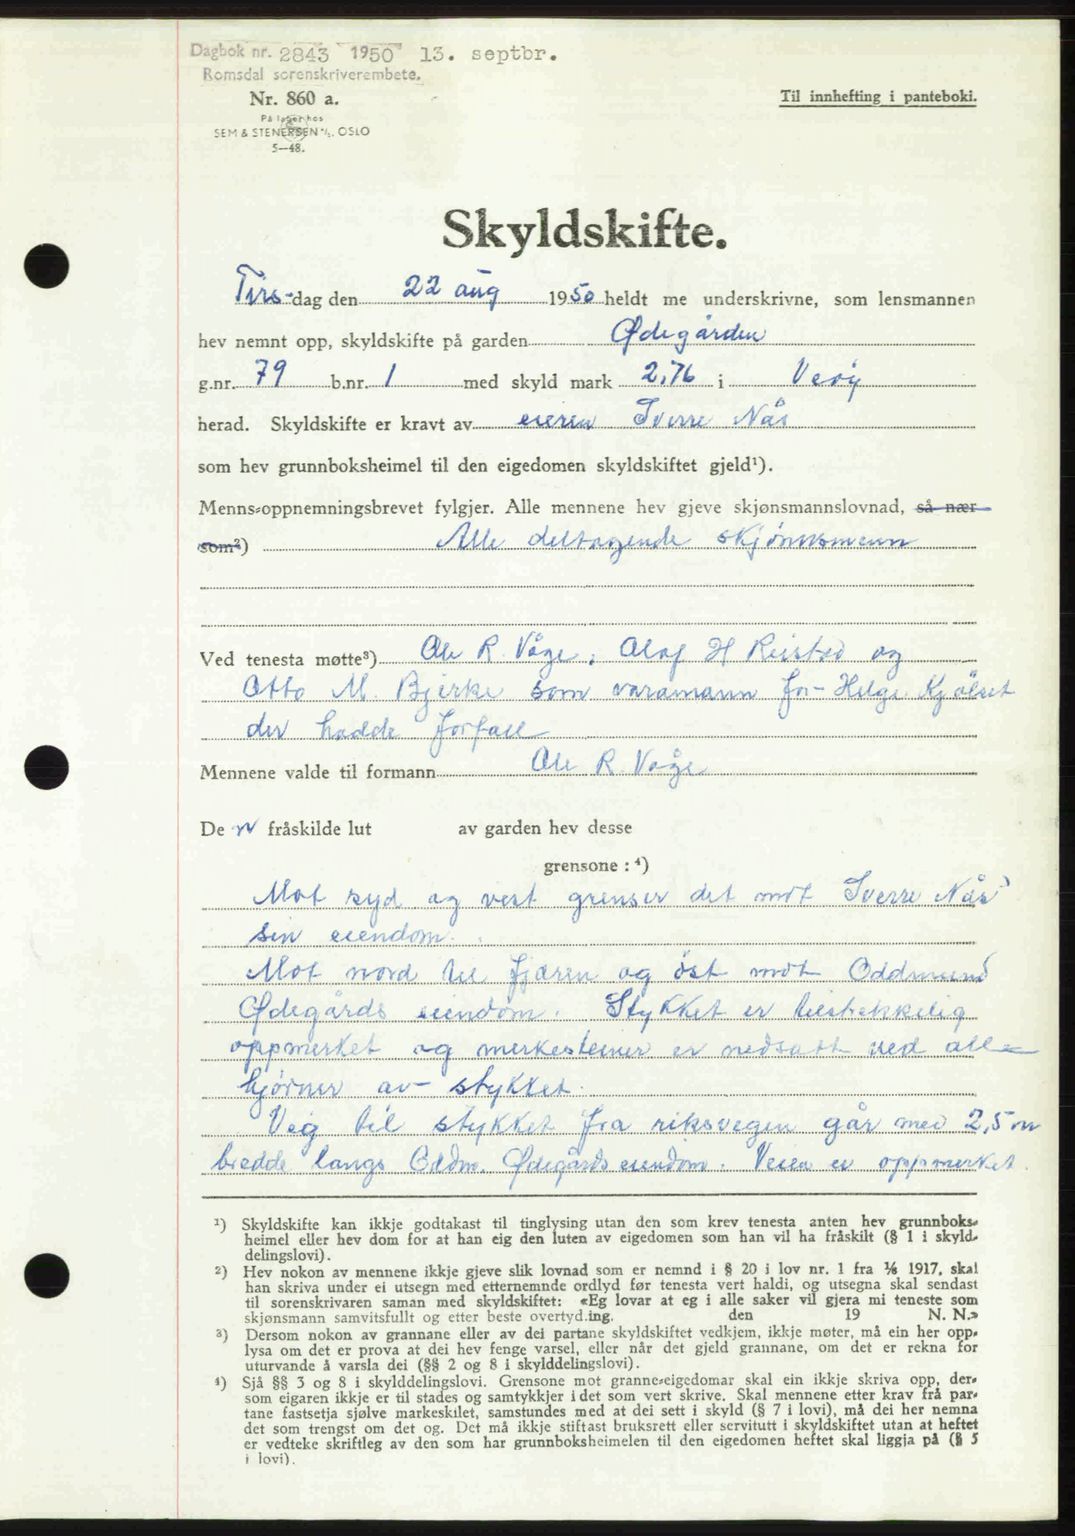 Dagbok nr. 2843 1950 13. septbr.
Romsdal sorenskriverembete.
Nr. 860 a.
Til innhefting i panteboki.
På lager hos
SEM & STENERSEN A/S, OSLO
5—48.
Skyldskifte.
Tirs-dag den 22 aug 1950 heldt me underskrivne, som lensmannen
hev nemnt opp, skyldskifte på garden Ødegården
g.nr. 79 b.nr. 1 med skyld mark 2,76 i Veøy
herad. Skyldskifte er kravt av eieren Sverre Nås
som hev grunnboksheimel til den eigedomen skyldskiftet gjeld¹).
Menns-oppnemningsbrevet fylgjer. Alle mennene hev gjeve skjønsmannslovnad, så nær
som²) Alle deltagende skjønnsmenn
Ved tenesta møtte³) Ole R. Våge, Olaf H Reistad og
Otto M. Bjerke som varamann for Helge Kjølset
der hadde forfall
Mennene valde til formann Ole R. Våge
De n fråskilde lut av garden hev desse
grensone : ⁴)
Mot syd og vest grenser det mot Sverre Nås
sin eiendom.
Mot nord til fjæren og øst mot Oddmund
Ødegårds eiendom. Stykket er tilstrekkelig
oppmerket og merkesteiner er nedsatt ved alle
hjørner av stykket.
Veg til stykket fra riksvegen går med 2,5 m
bredde langs Oddm. Ødegårds eiendom. Veien er oppmerket.
¹) Skyldskifte kan ikkje godtakast til tinglysing utan den som krev tenesta anten hev grunnboks-
heimel eller hev dom for at han eig den luten av eigedomen som han vil ha fråskilt (§ 1 i skyld-
delingslovi).
²) Hev nokon av mennene ikkje gjeve slik lovnad som er nemnd i § 20 i lov nr. 1 fra 1/6 1917, skal
han skriva under ei utsegn med etternemnde ordlyd før tenesta vert haldi, og utsegna skal sendast
til sorenskrivaren saman med skyldskiftet: «Eg lovar at eg i alle saker vil gjera mi teneste som
skjønsmann samvitsfullt og etter beste overtyd.ing. den 19 N. N.»
³) Dersom nokon av grannane eller av dei partane skyldskiftet vedkjem, ikkje møter, må ein her opp-
lysa om det er prova at dei hev fenge varsel, eller når det gjeld grannane, om det er rekna for
uturvande å varsla dei (§§ 2 og 8 i skylddelingslovi).
⁴) Sjå §§ 3 og 8 i skylddelingslovi. Grensone mot granne-eigedomar skal ein ikkje skriva opp, der-
som eigaren ikkje er til stades og samtykkjer i det som vert skrive. Skal mennene etter krav frå par-
tane fastsetja sjølve markeskilet, samstundes med at dei sett i skyld (§ 7 i lovi), må dei her nemna
det som trengst om det og. Det må ikkje stiftast bruksrett eller servitutt i skyldskiftet utan at heftet
er vedteke skriftleg av den som har grunnboksheimelen til den eigedomen heftet skal liggja på (§ 5
i lovi).